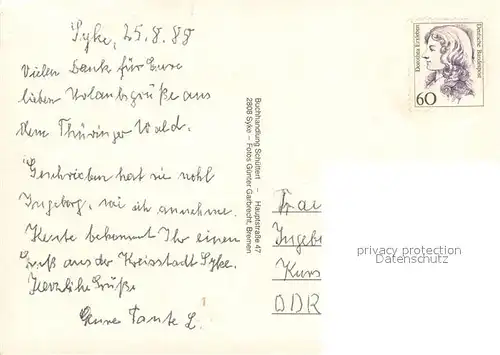 Syke, 25.8.88
Vielen Dank für Eure
lieben Urlaubsgrüße aus
dem Thüringer Wald.
Geschrieben hat sie wohl
Ingeborg, wie ich annehme.
Heute bekommt Ihr einen
Gruß aus der Kreisstadt Syke.
Herzliche Grüße
Eure Tante L.
Buchhandlung Schüttert - Hauptstraße 47
2808 Syke - Fotos Günter Garbrecht, Bremen
Deutsche Bundespost
Dorothea Erxleben
60
Ingebo
Kurs
DDR
privacy protection
Datenschutz